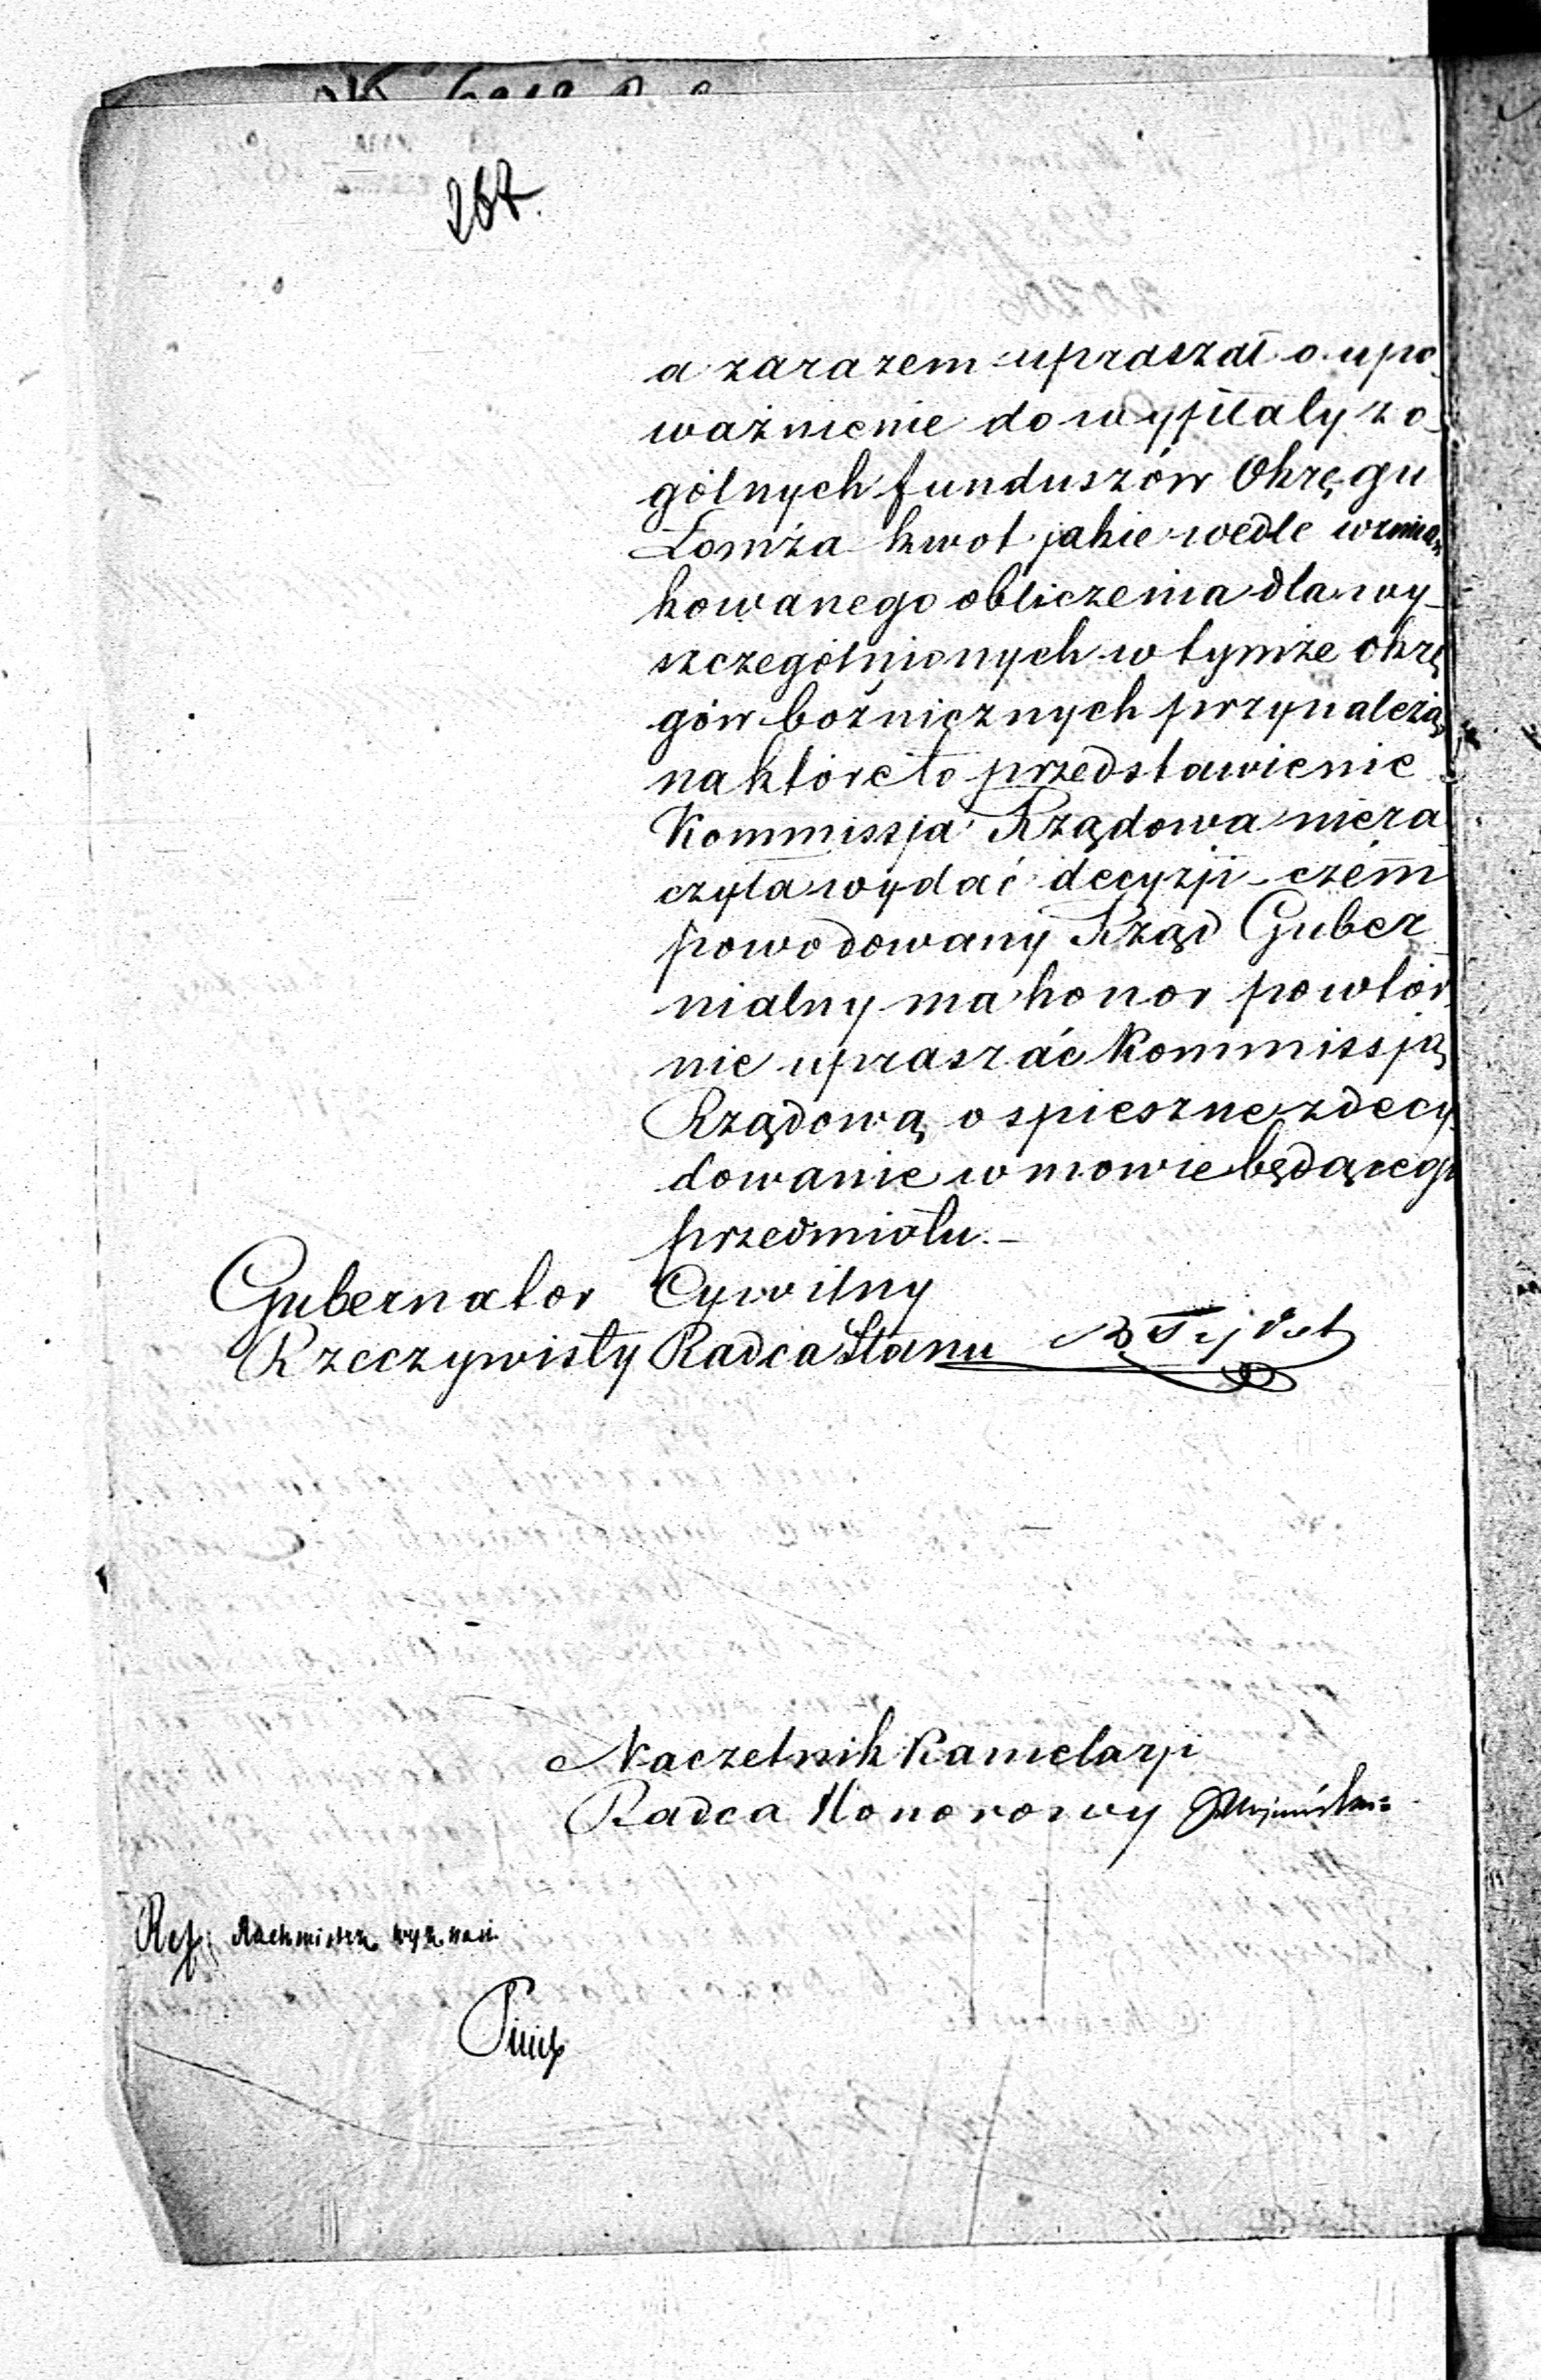 267.
a zarazem upraszał o upo-
ważnienie do wypłaty z o-
gólnych funduszów Okręgu
Łomża kwot jakie wedle wzmian
kowanego obliczenia dla wy-
szczególnionych w tymże okrę
gów bóżnicznych przynależą
na które to przedstawienie
Kommissja Rządowa niera
czyła wydać decyzji - czém
powodowany Rząd Guber
nialny ma honor powtór
nie upraszać Kommissją
Rządową o spieszne zdecy-
dowanie w mowie będącego
przedmiotu. -
Gubernator Cywilny
Rzeczywisty Radca Stanu
Naczelnik Kancelarji
Radca Honorowy
Ref. Rachmistrz wyznań.